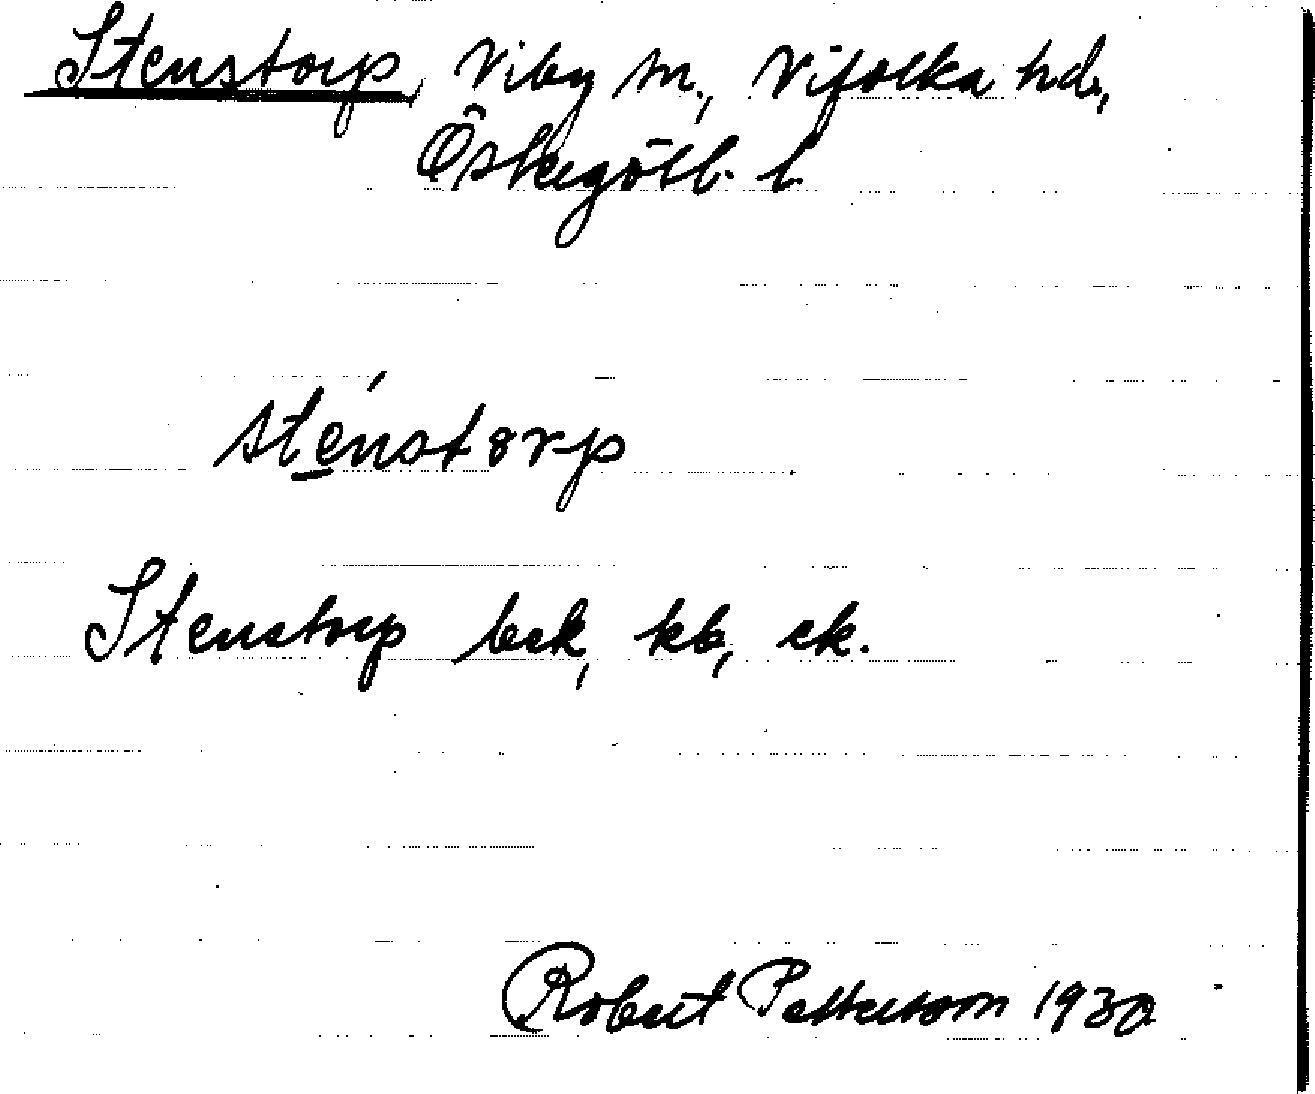 Stenstorp, Viby sn., Vifolka hd.,
Östergötl. l.
sténstorp
Stenstorp bck, kb, ek.
Robert Pettersson 1930